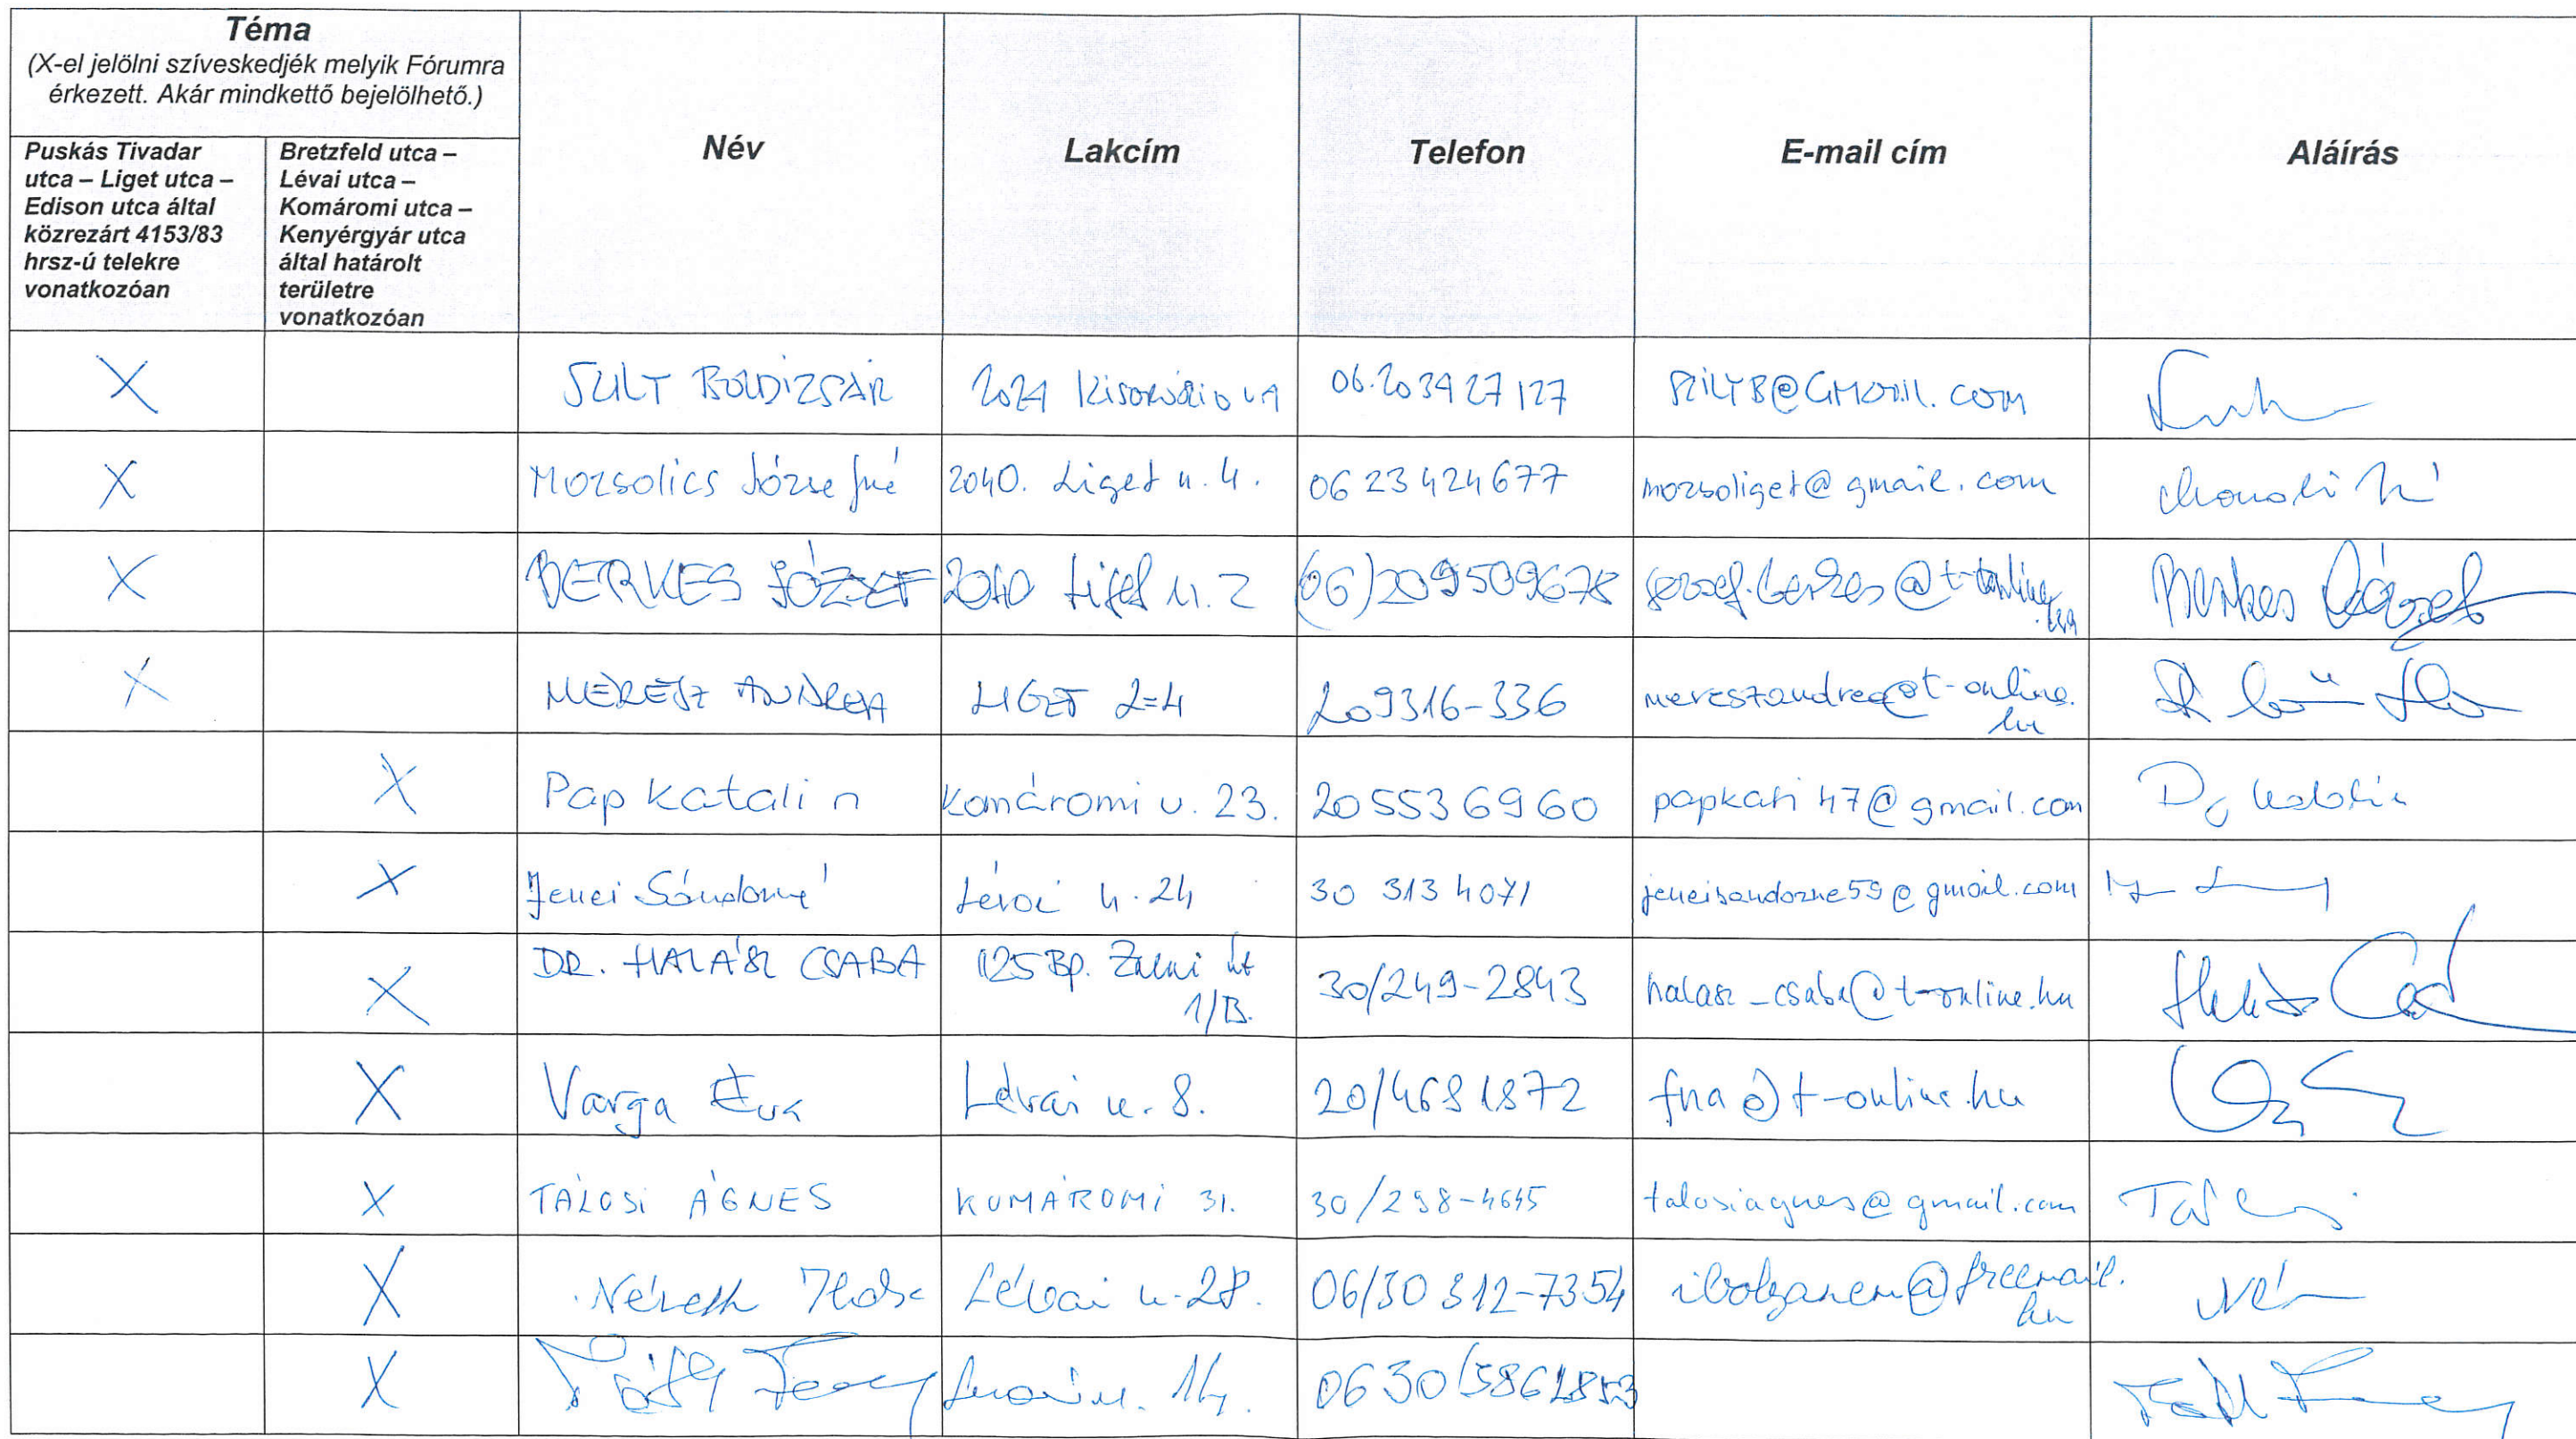 Téma
(X-el jelölni szíveskedjék melyik Fórumra
érkezett. Akár mindkettő bejelölhető.)
Puskás Tivadar
utca – Liget utca –
Edison utca által
közrezárt 4153/83
hrsz-ú telekre
vonatkozóan
Bretzfeld utca –
Lévai utca –
Komáromi utca –
Kenyérgyár utca
által határolt
területre
vonatkozóan
Név
Lakcím
Telefon
E-mail cím
Aláírás
X BOLDIZSÁR 06.20 39 27 127
X Mozsolics Józsefné 2040. Liget u. 4. 06 23 424677 mozsoliget@gmail.com
X BERKES JÓZSEF 2040 Liget u. 2 (06)209509678 Berkes József
X MERÉSZ ANDREA LIGET 2-4 209316-336 mereszandrea@t-online.
hu
X Pap Katalin Komáromi u. 23. 20 553 69 60 papkati47@gmail.com
X Jenei Sándorné Lévai u. 24 30 313 4071 jeneisandorne59@gmail.com
X DR. HALÁSZ CSABA 1125 Bp. Zalai út
1/B. 30/249-2843 halasz_csaba@t-online.hu
X Varga Éva Lévai u. 8. 20/468 1872 fna@t-online.hu
X TÁLOSI ÁGNES KOMÁROMI 31. 30/298-4645 talosiagnes@gmail.com
X Németh Lévai u. 28. 06/30 312-7354 ibolyanem@freemail.
hu
X Tóth 14. 06 30/5861853